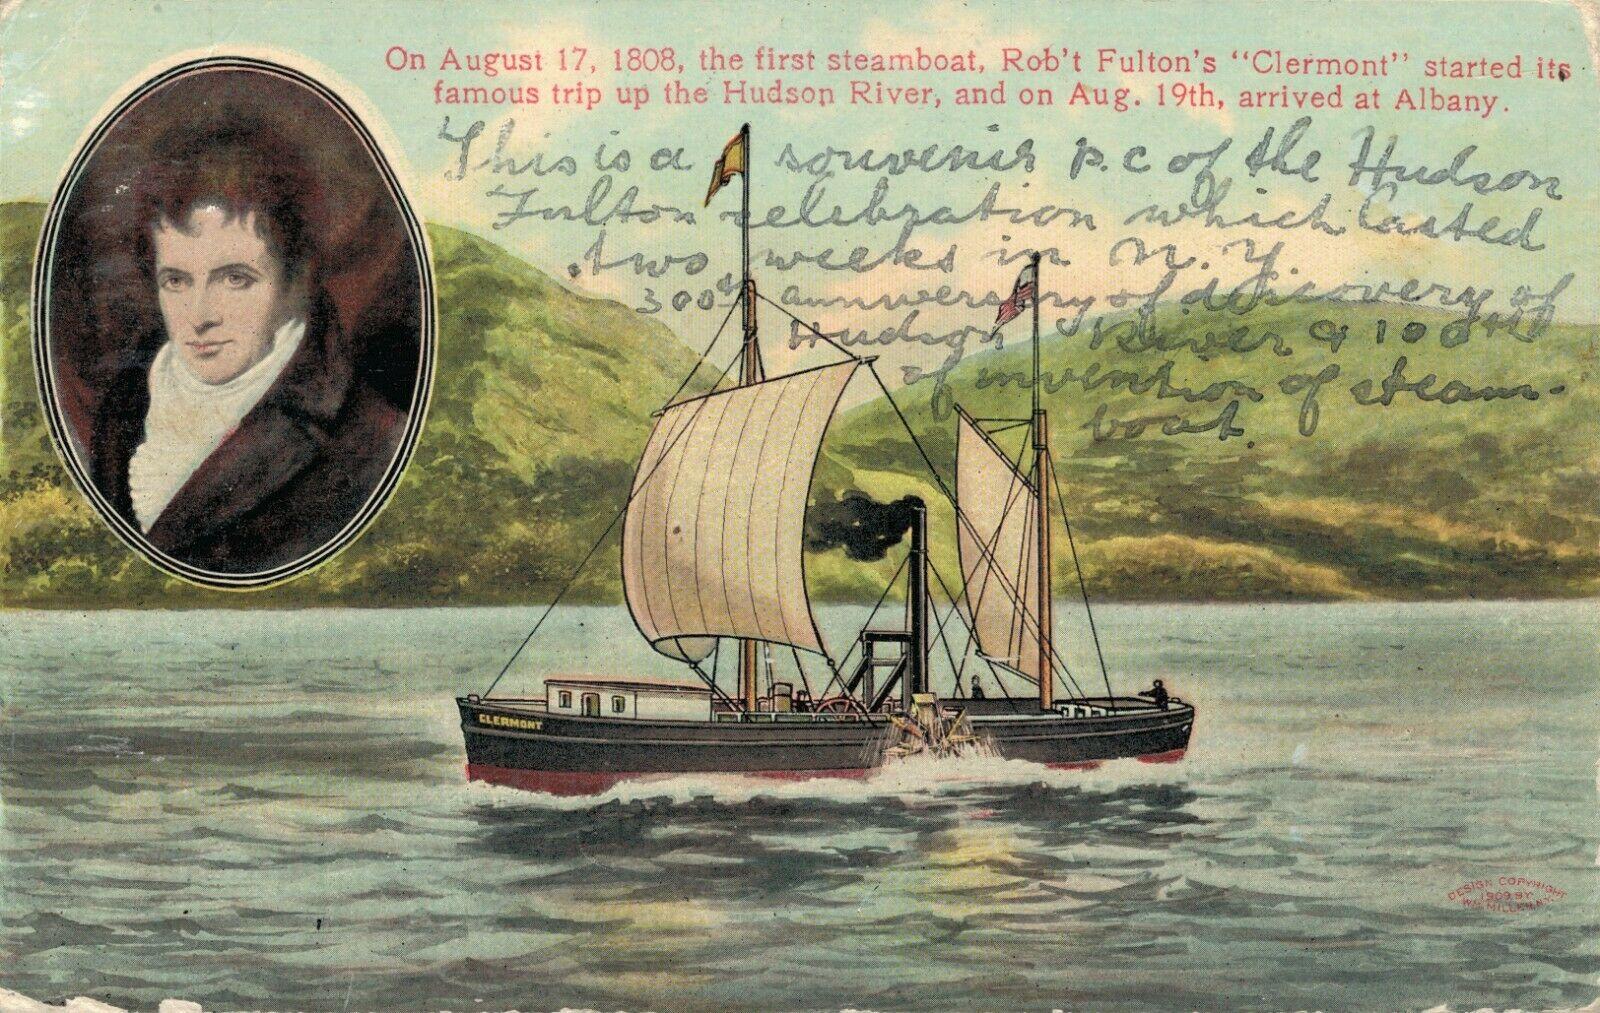 On August 17, 1808, the first steamboat, Rob't Fulton's "Clermont" started its
famous trip up the Hudson River, and on Aug. 19th, arrived at Albany.
This is a souvenir p.c of the Hudson
Fulton celebration which lasted
two weeks in N.Y.
300th anniversary of discovery of
Hudson River & 100th
of invention of steam-
boat.
CLERMONT
DESIGN COPYRIGHT
1909 BY
MILLER, N.Y.